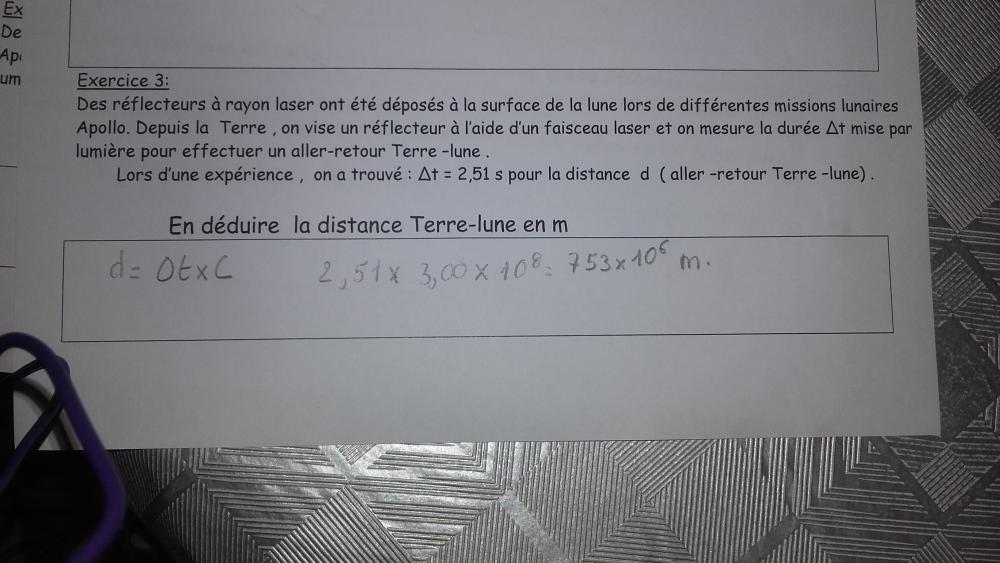 Ex
De
Ap
um
Exercice 3:
Des réflecteurs à rayon laser ont été déposés à la surface de la lune lors de différentes missions lunaires
Apollo. Depuis la Terre , on vise un réflecteur à l'aide d'un faisceau laser et on mesure la durée Δt mise par
lumière pour effectuer un aller-retour Terre -lune .
Lors d'une expérience , on a trouvé : Δt = 2,51 s pour la distance d ( aller -retour Terre -lune) .
En déduire la distance Terre-lune en m
d = Δt x C 2,51 x 3,00 x 10⁸ = 753 x 10⁶ m.